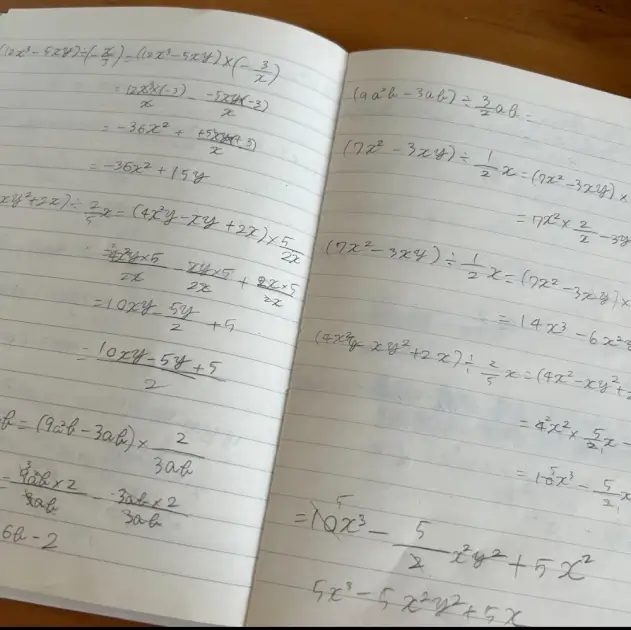 (12x³-5xy)÷(-x/3)=(12x³-5xy)×(-3/x)
= 12x³×(-3)/x - -5xy×(-3)/x
= -36x² + +5xy(+3)/x
= -36x²+15y
xy²+2x)÷2/5x=(4x²y-xy+2x)×5/2x
4x²y×5/2x - xy×5/2x + 2x×5/2x
=10xy-5y/2+5
=10xy-5y+5/2
b=(9a²b-3ab)×2/3ab
=9a²b×2/3ab - 3ab×2/3ab
6b-2
(9a²b-3ab)÷3/2ab=
(7x²-3xy)÷1/2x=(7x²-3xy)×
=7x²×2/x-3y
(7x²-3xy)÷1/2x=(7x²-3xy)×
=14x³-6x²y
(4x²y-xy²+2x)÷2/5x=(4x²-xy²+2
=4x²×5/2x-
=10x³-5/2x
=10x³-5/2x²y²+5x²
5
5x³-5x²y²+5x